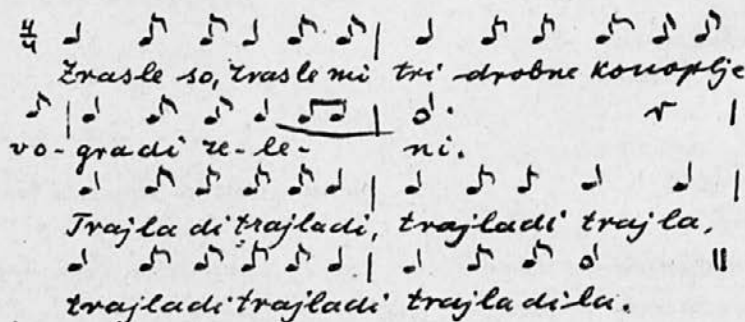 4/4
Zrasle so, zrasle mi tri drobne konoplje
vo-gradi ze-le- ni.
Trajla di trajladi, trajladi trajla,
trajladi trajladi trajla di la.